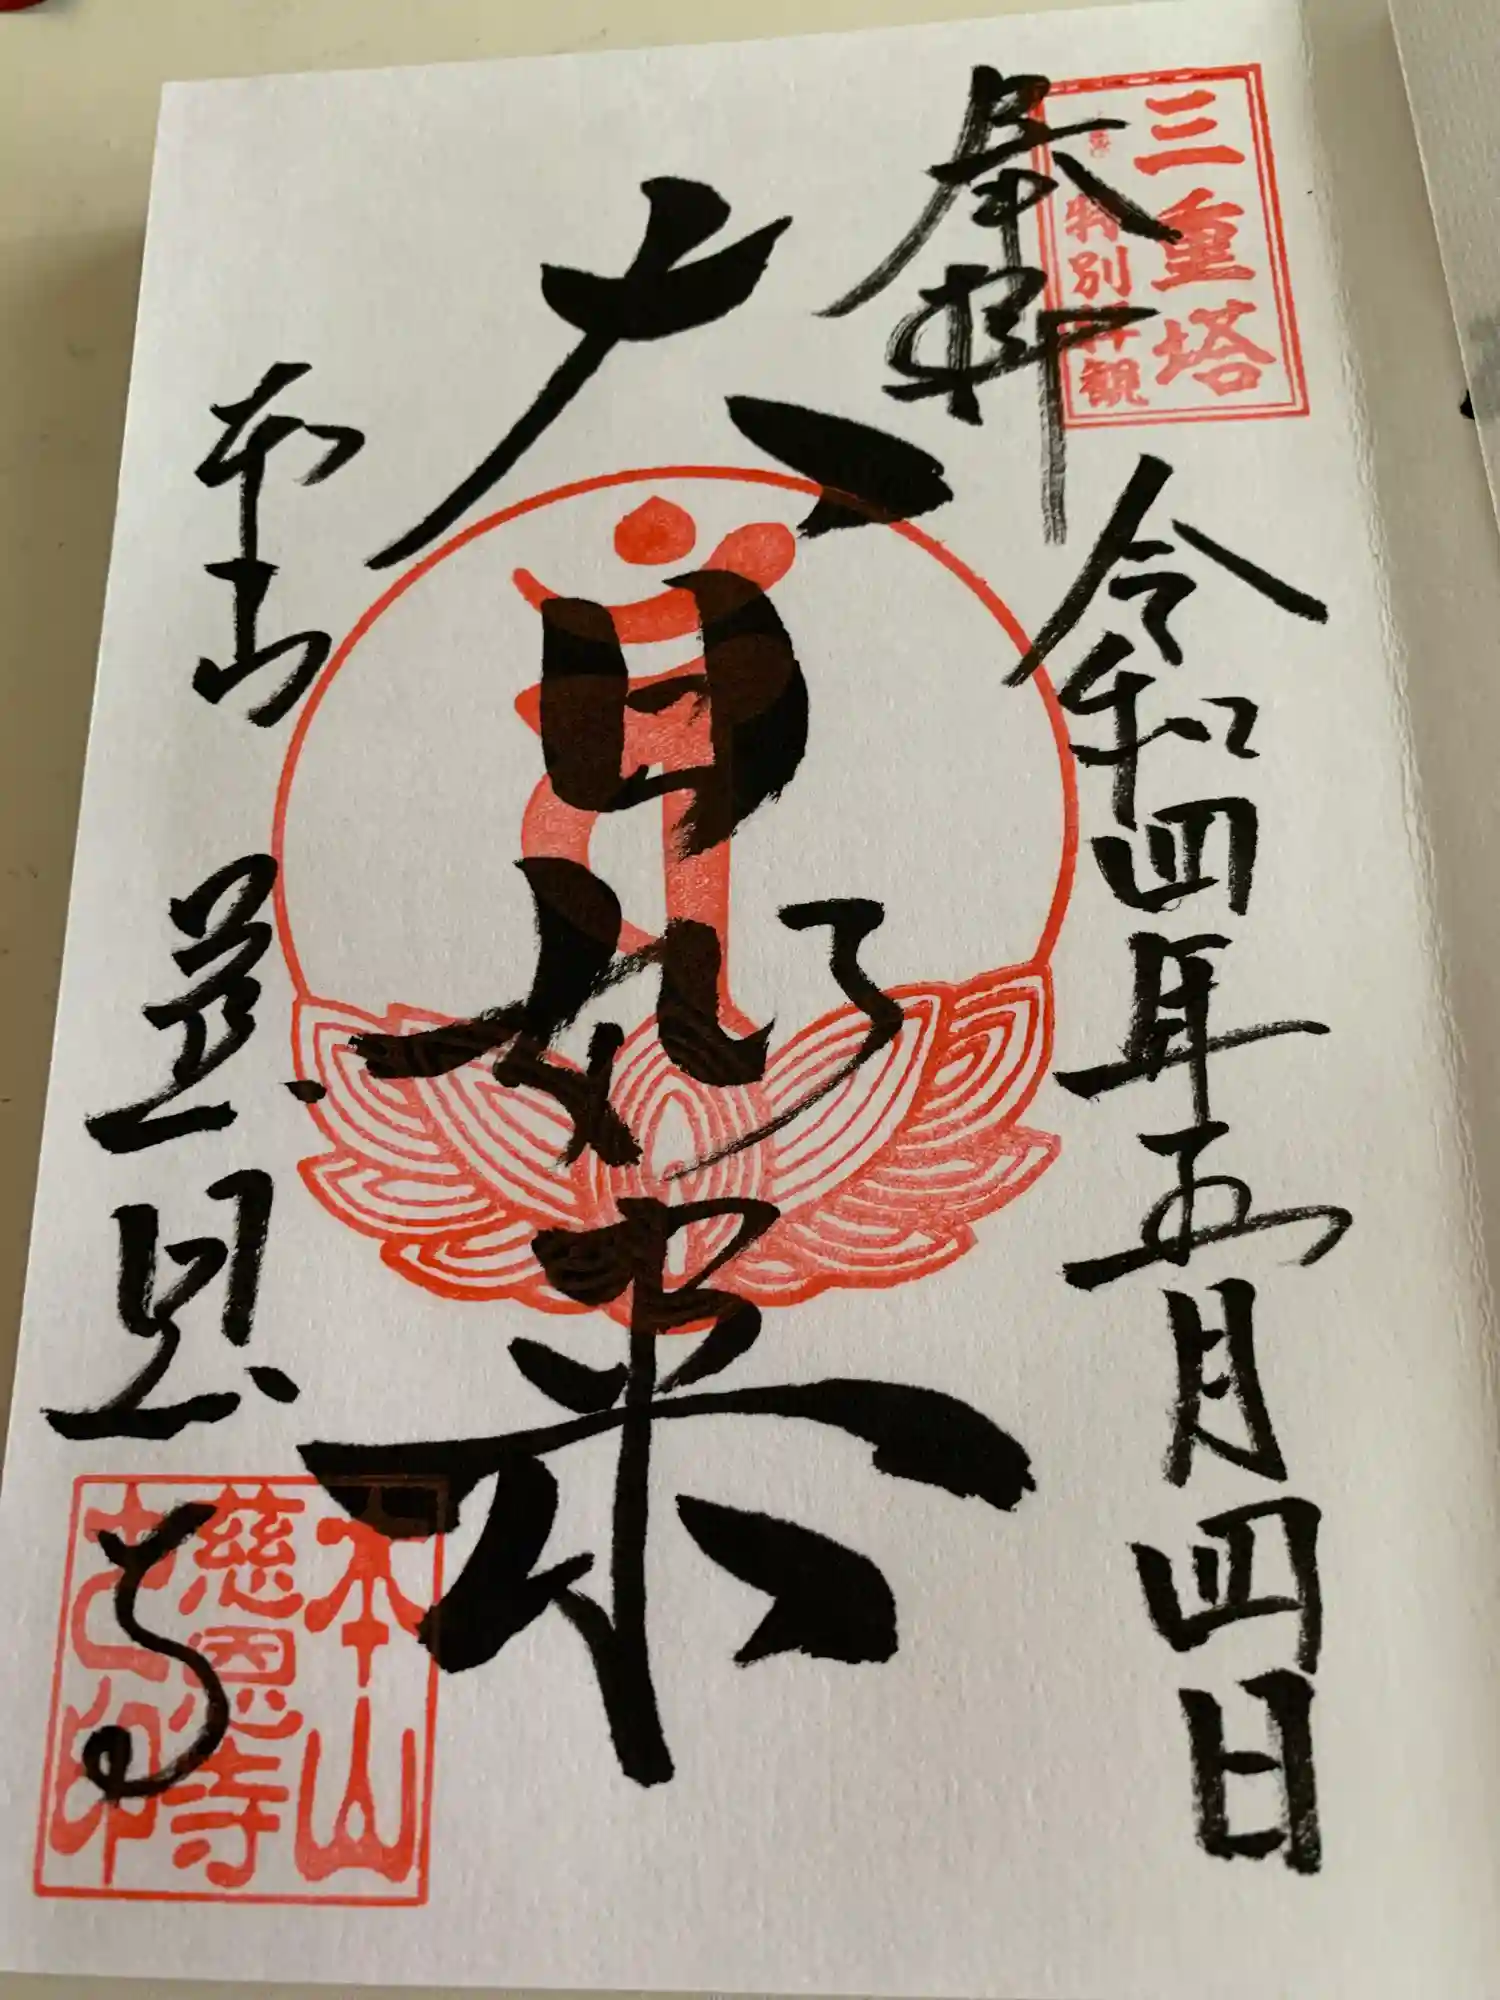 三重塔
特別拝観
奉拝
令和四年五月四日
大日如来
本山
慈恩寺
本山
慈恩寺
之印